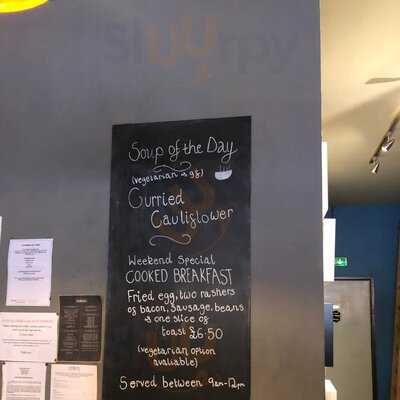 Sluurpy
Soup of the Day
(vegetarian & gf)
Curried
Cauliflower
Weekend Special
COOKED BREAKFAST
Fried egg, two rashers
of bacon, sausage, beans
& one slice of
toast £6.50
(vegetarian option
avaliable)
Served between 9am-12pm